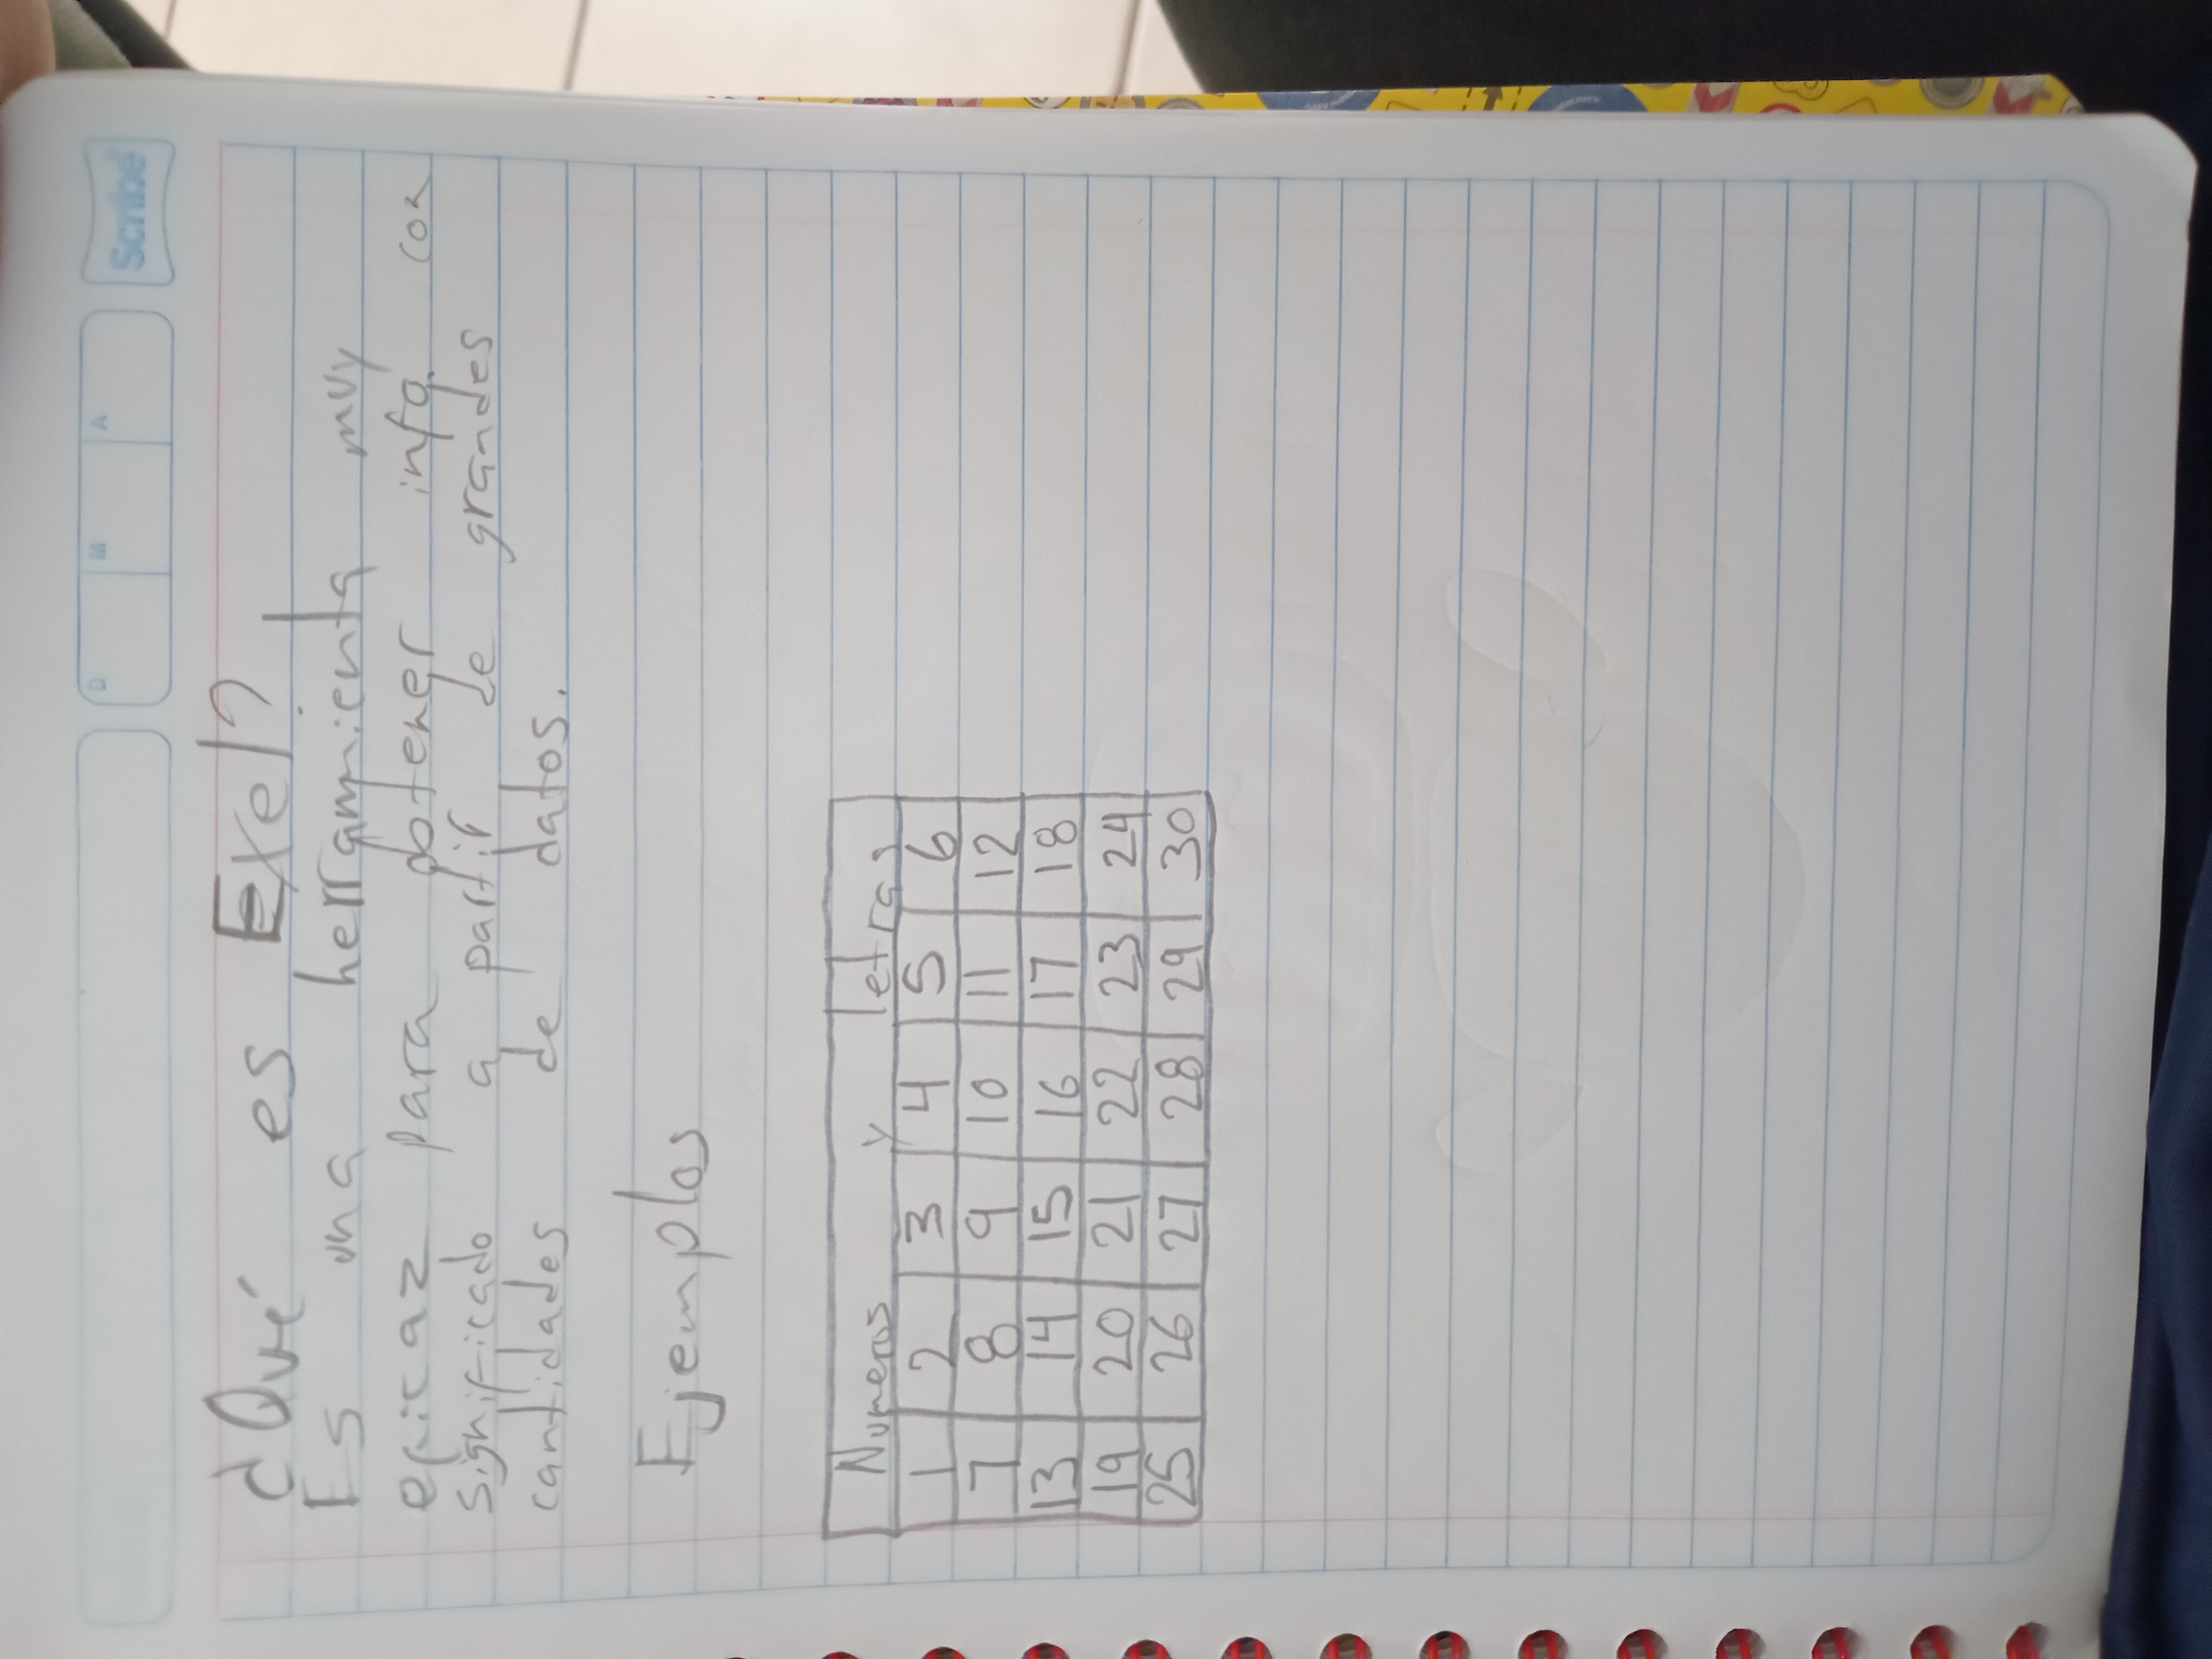 Scribe
D M A
¿Qué es Exel?
Es una herramienta muy
eficaz para obtener info. con
significado a partir de grandes
cantidades de datos.
Ejemplos
Numeros y letras
1 2 3 4 5 6
7 8 9 10 11 12
13 14 15 16 17 18
19 20 21 22 23 24
25 26 27 28 29 30